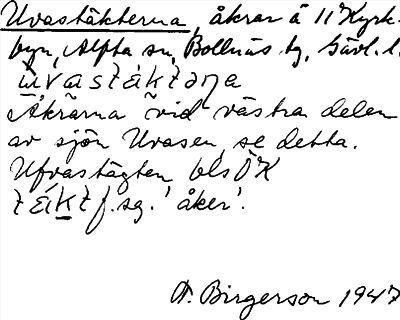 Uvastäkterna, åkrar å 11 Kyrk-
byn, Alfta sn, Bollnäs tg, Gävl. l.
Åkrarna vid västra delen
av sjön Uvasen, se detta.
Ufvastägten bls ÖK
f. sg. 'åker'.
A. Birgerson 1947